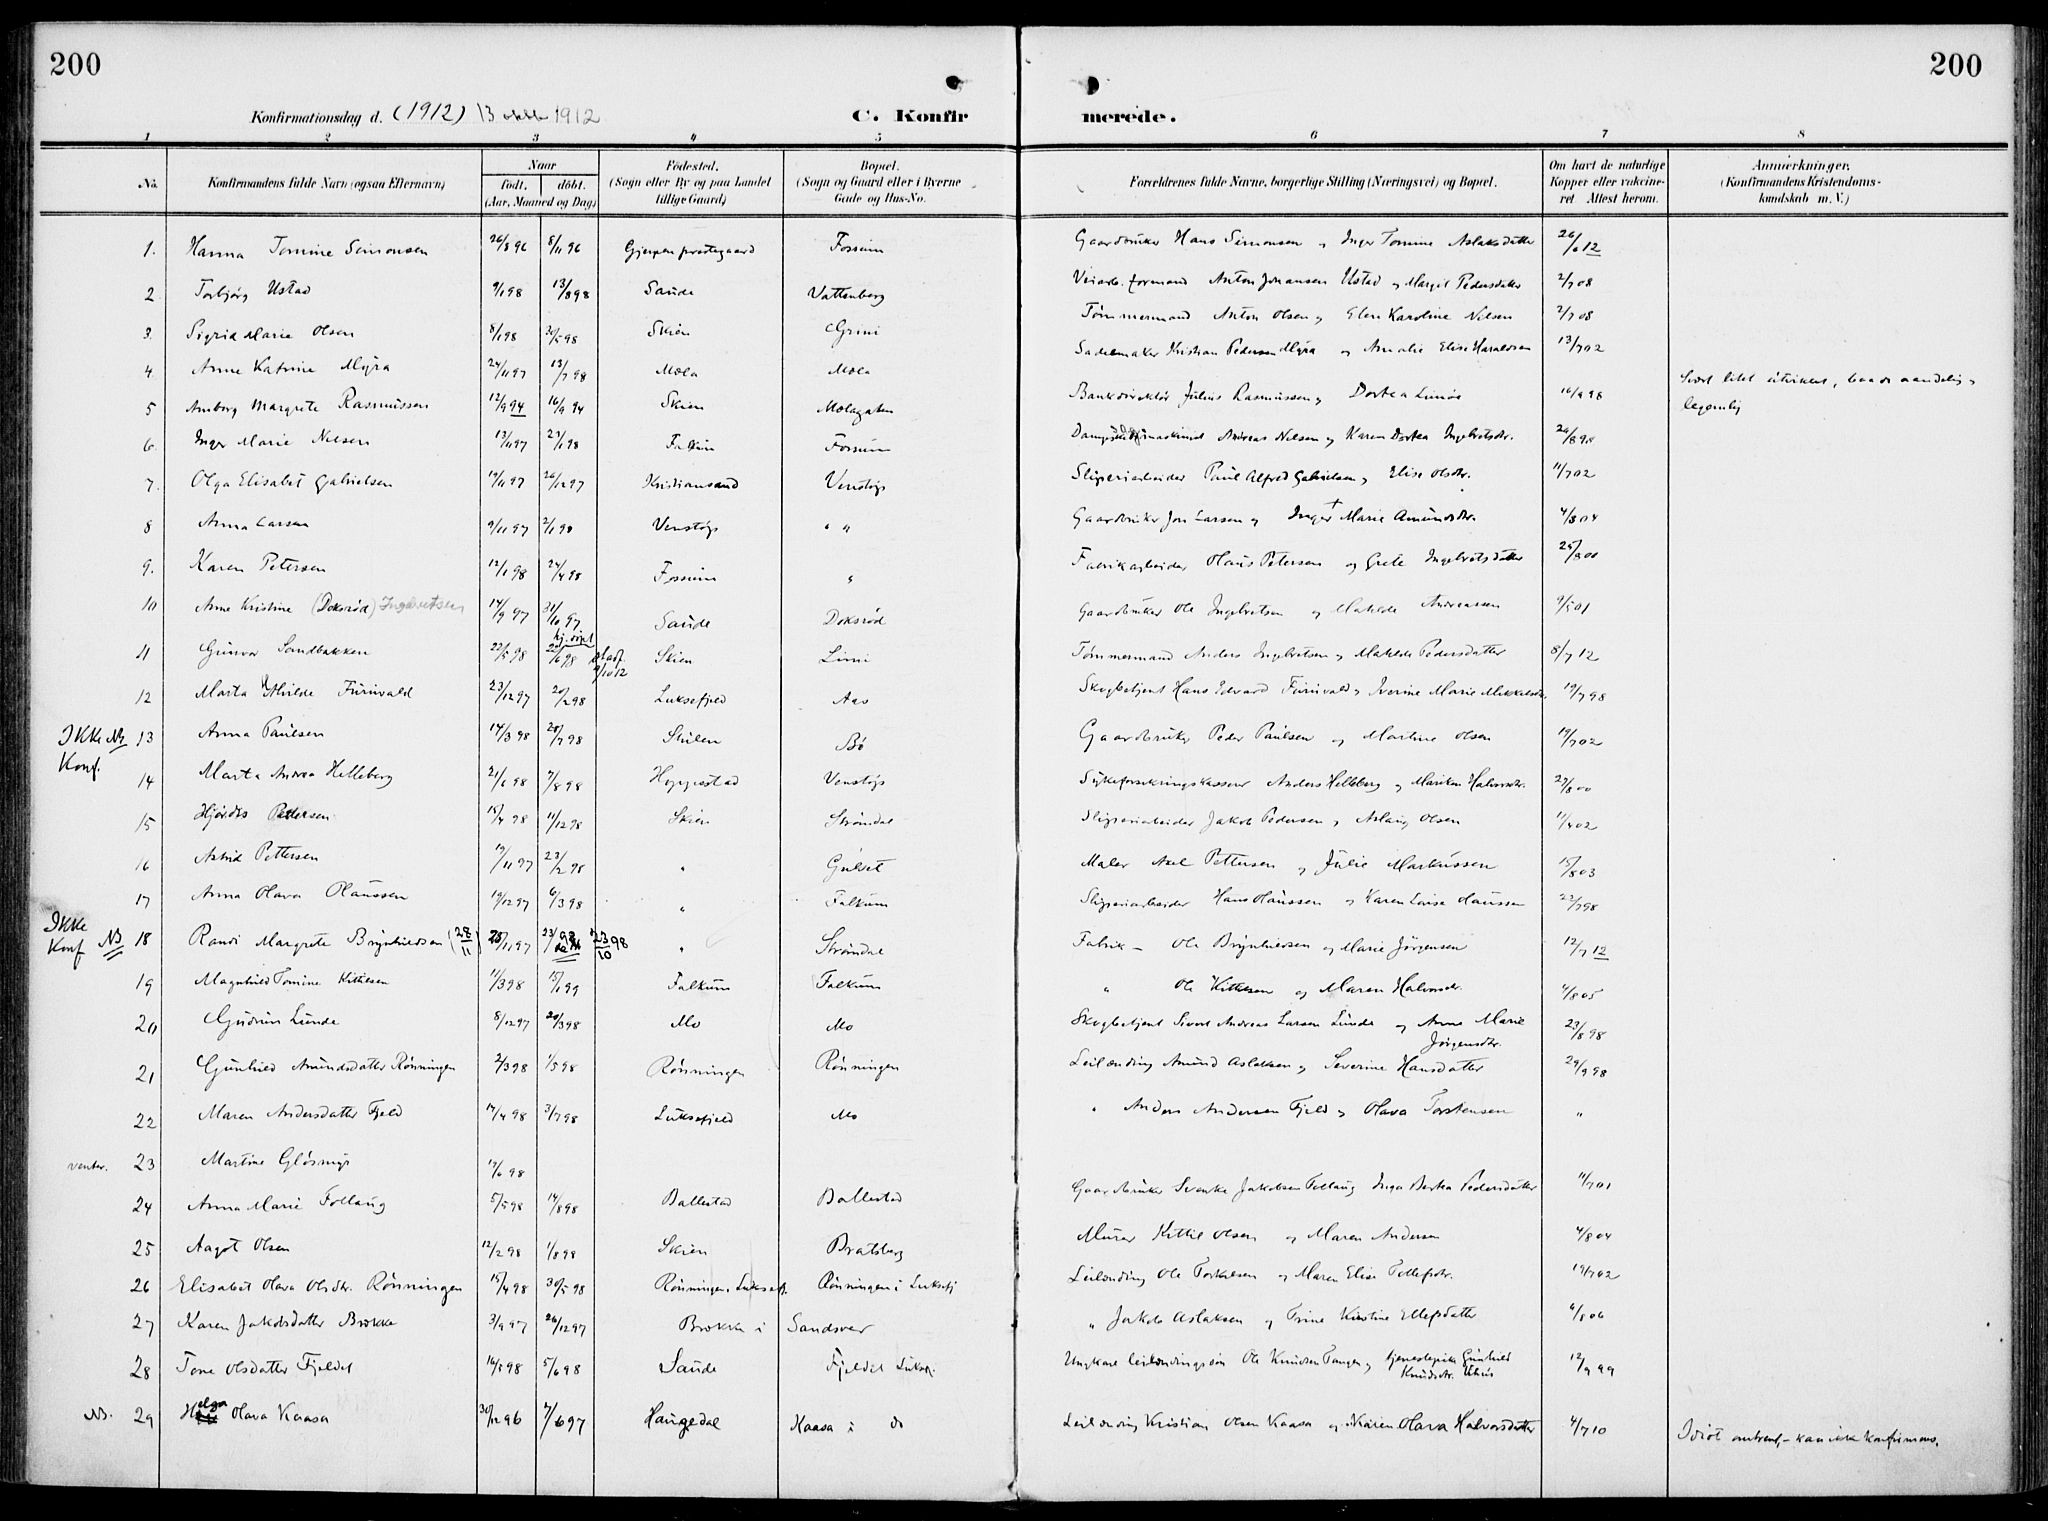 200
200
Konfirmationsdag d. (1912) 13 oktb 1912
C. Konfirmerede.
1 2 3 4 5 6 7 8
No.
Konfirmandens fulde Navn (ogsaa Efternavn)
Naar
født. døbt.
(Aar, Maaned og Dag)
Fødested.
(Sogn eller By og paa Landet
tillige Gaard)
Bopæl.
(Sogn og Gaard eller i Byerne
Gade og Hus-No.
Forældrenes fulde Navne, borgerlige Stilling (Næringsvei) og Bopæl.
Om havt de naturlige
Kopper eller vakcine-
ret Attest herom.
Anmærkninger.
(Konfirmandens Kristendoms-
kundskab m. V.)
1. Hanna Tomine Simonsen 26/8 96 8/11 96 Gjerpen prestegaard Fossum Gaardbruker Hans Simonsen og Inger Tomine Aslaksdatter 26/6 12
2 Torbjörg Ustad 9/1 98 13/8 98 Saude Vattenberg Veiarb. formand Anton Johansen Ustad og Margit Pedersdatter 2/7 08
3. Sigrid Marie Olsen 8/1 98 30/5 98 Skien Grini Tømmermand Anton Olsen og Elen Karoline Nilsen 2/7 08
4 Anne Katrine Myra 24/11 97 13/7 98 Mæla Mæla Sadelmaker Kristian Pedersen Myra og Amalie Elise Haraldsen 13/7 02
5 Margrete Rasmussen 12/9 94 16/9 94 Skien Mælagaten Bankdirektør Julius Rasmussen og Dortea 16/9 98 Svært litet utviklet, baade aandelig og
legemlig
6. Inger Marie Nilsen 13/11 97 23/1 98 Falkum Fossum Andreas Nilsen og Karen Dortea Ingebretsdtr.
7. Olga Elisabet Gabrielsen 19/11 97 26/12 97 Kristiansand Venstøp Sliperiarbeider Paul Alfred Gabrielsen og Elise Olsdtr. 11/7 02
8 Anna Larsen 9/11 97 2/1 98 Venstøp " " Gaardbruker Jon Larsen og Inger Marie Amundsdtr. 4/8 04
9. Karen Petersen 12/1 98 24/4 98 Fossum " Fabrikarbeider Hans Petersen og Grete Ingebretsdatter 25/8 00
10 Anne Kristine (Doksrød) Ingebretsen 14/9 97 31/10 97 Saude Doksrød Gaardbruker Ole Ingebretsen og Matilde Andreassen 9/5 01
11 Gunvor Sandbakken 22/5 98 hj. døpt 22/6 98 Skien Limi Tømmermand Anders Ingebretsen og Matilde Pedersdatter 8/7 12
12 Marta Furuvald 23/12 97 20/2 98 Luksefjeld Aas Skogbetjent Hans Edvard Furuvald og Iverine Marie Mikkelsdtr. 19/7 98
Ikke NB
Konf.
13 Anna Paulsen 14/3 98 28/7 98 Skilen Bø Gaardbruker Peder Paulsen og Martine Olsen 19/7 02
14 Marta Andrea Helleberg 21/6 98 7/8 98 Hoppestad Venstøp Sykeforsikringskasserer Anders Helleberg og Mariken Halvorsdtr. 27/8 00
15 Hjördis Pedersen 15/4 98 11/12 98 Skien Strømdal Sliperiarbeider Jakob Pedersen og Aslaug Olsen 11/4 02
16 Astrid Pettersen 19/11 97 23/2 98 " Gulset Maler Axel Pettersen og Julie Markussen 15/8 03
17 Anna Olava Claussen 19/12 97 6/3 98 " Falkum Sliperiarbeider Hans Claussen og Karen Lovise Claussen 22/7 98
Ikke
Konf NB
18 Randi Margrete Brynhildsen (28/11) 28/11 97 23/10 98 " Strømdal Fabrik- Ole Brynhildsen og Marie Jørgensen 12/7 12
19 Magnhild Tomine Kittilsen 11/3 98 15/1 99 Falkum Falkum " Ole Kittilsen og Maren Halvorsdtr. 4/8 05
20 Gudrun Lunde 8/12 97 20/3 98 Mo Mo Skogbetjent Sivert Andreas Larsen Lunde og Anne Marie
Jørgensdtr. 23/8 98
21 Gunhild Amundsdatter Rønningen 2/3 98 1/5 98 Rønningen Rønningen Leilænding Amund Aslaksen og Severine Hansdatter 29/9 98
22 Maren Andersdatter Fjeld 14/4 98 3/7 98 Luksefjeld Mo " Anders Andersen Fjeld og Olava Torstensen "
venter. 23 Martine Gløsmyr 19/6 98
24 Anna Marie Follaug 5/5 98 14/8 98 Ballestad Ballestad Gaardbruker Svenke Jakobsen Follaug Inga Bertea Pedersdatter 11/7 01
25 Aagot Olsen 12/2 98 1/8 98 Skien Bratsberg Murer Kittil Olsen og Maren Andersen 4/8 04
26 Elisabet Olava Olsdtr. Rønningen 15/4 98 30/5 98 Rønningen i Luksefj. Rønningen i Luksefj Leilænding Ole Torkelsen og Maren Elise Tollefsdtr. 19/7 02
27 Karen Jakobsdatter Brokke 3/9 97 26/12 97 Brokke i Sandsver " Jakob Aslaksen og Trine Kirstine Ellefsdatter 6/8 06
28 Tone Olsdatter Fjeldet 16/5 98 5/6 98 Saude Fjeldet Luksefj. Ungkarl leilændingssøn Ole Knudsen Tangen og tjenestepike Gunhild
Knudsdtr. 12/9 99
NB. 29 Helga Olava Kaasa 30/12 96 7/6 97 Haugedal Kaasa i do Leilænding Kristian Olsen Kaasa og Karen Olava Halvorsdatter 4/7 10 Idiot omtrent, - kan ikke konfirmeres.